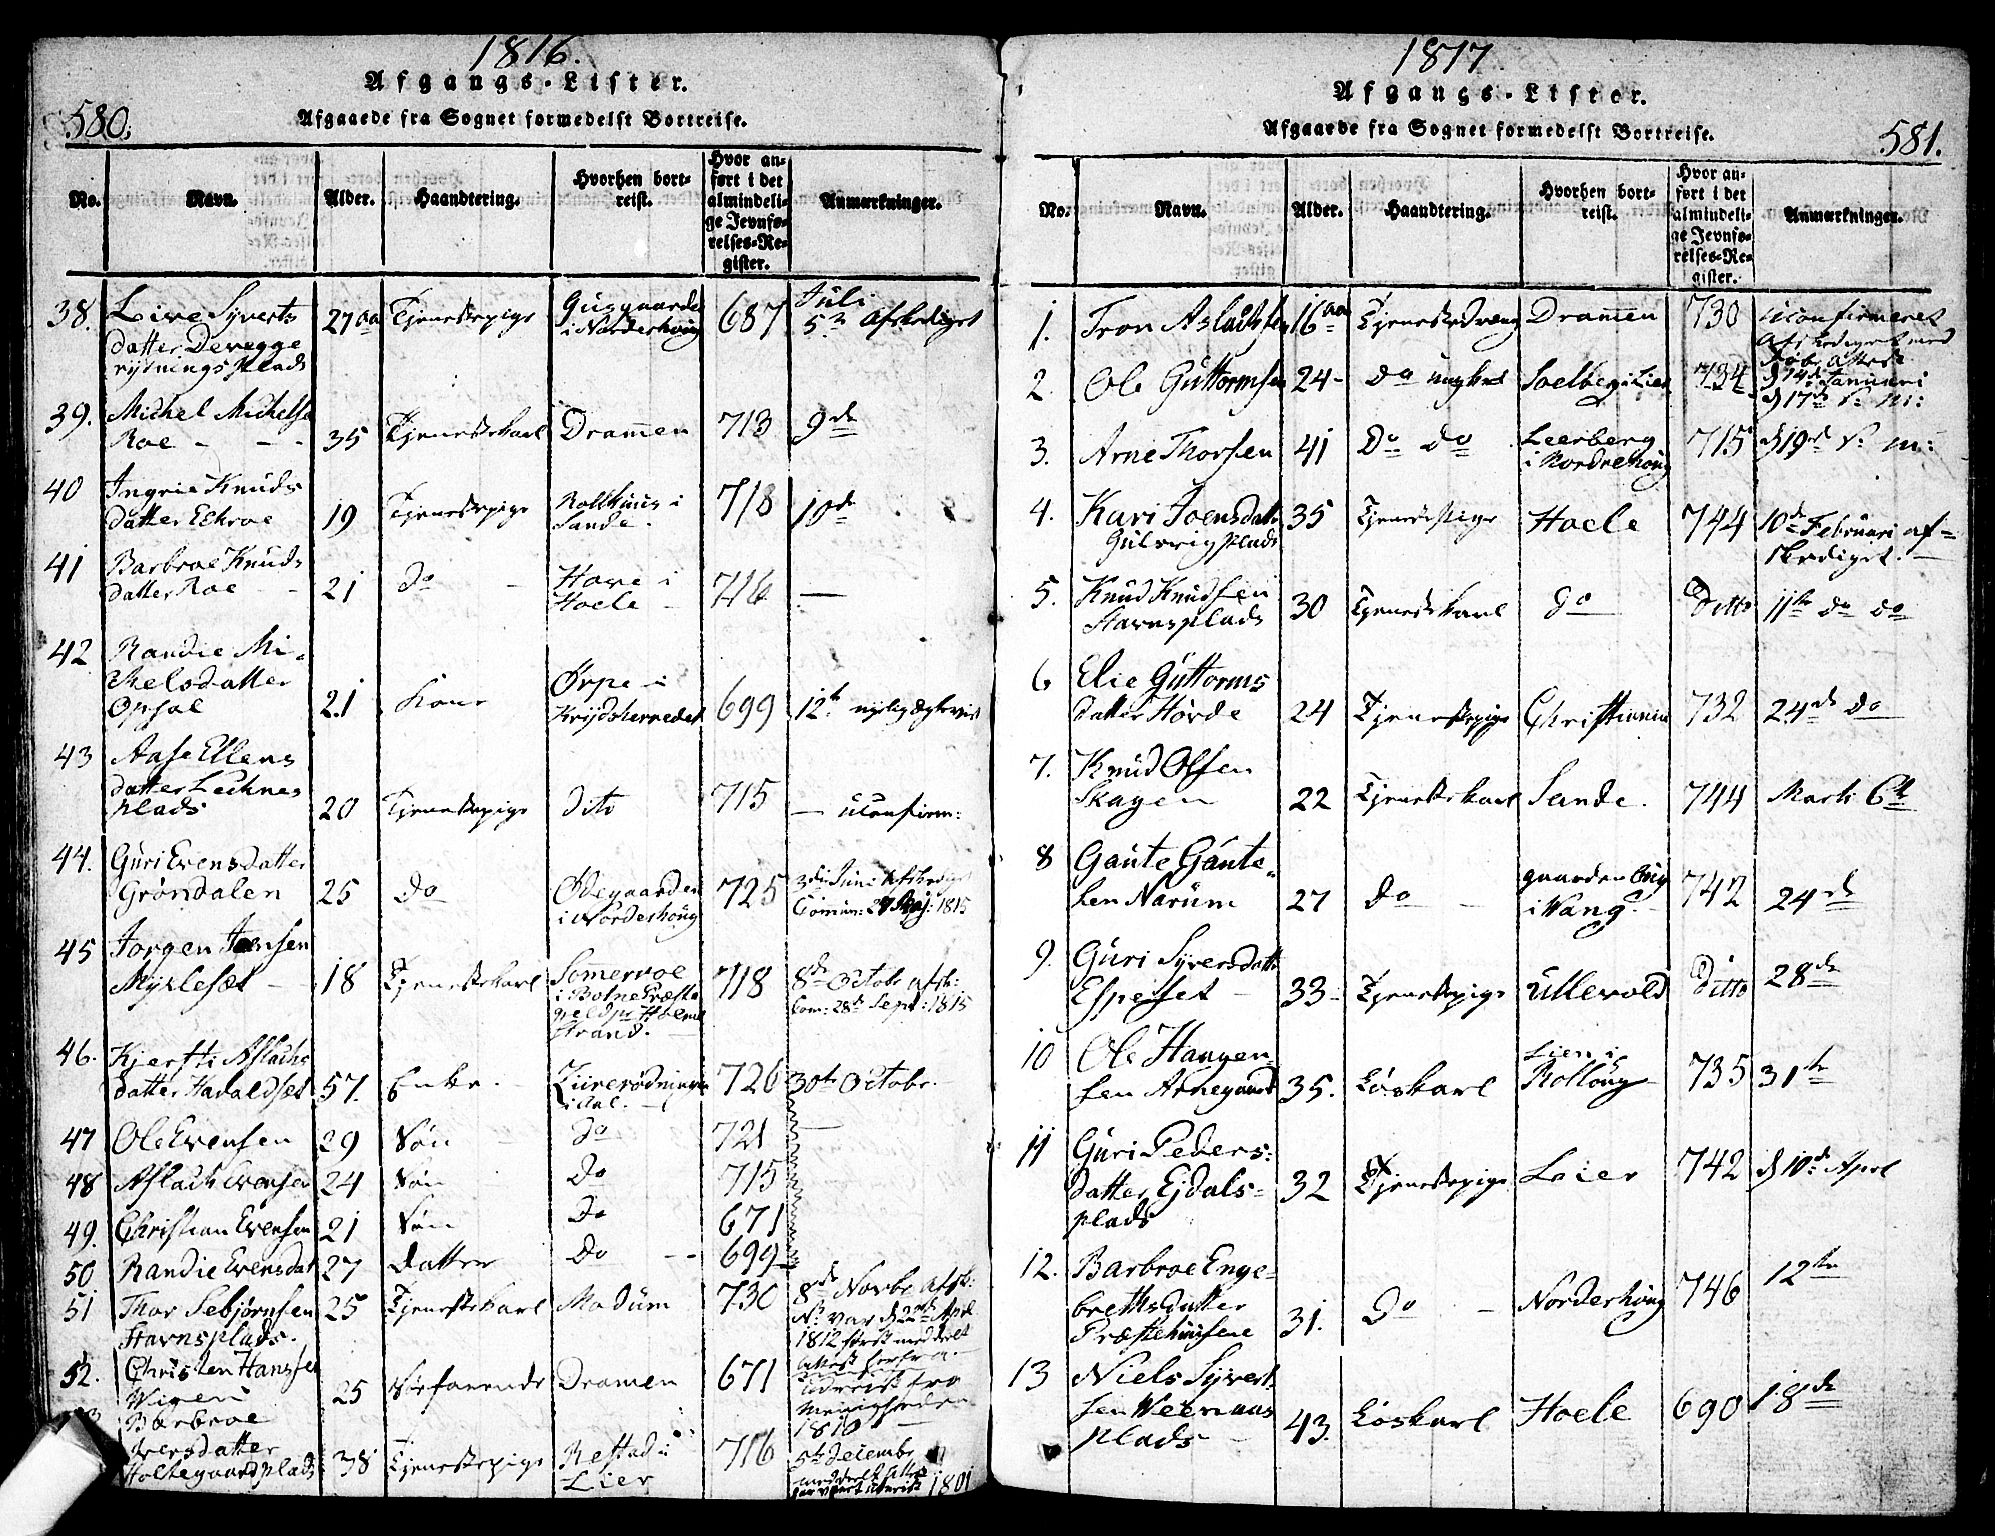 1816.
Afgangs-Lister.
580.
Afgaaede fra Sognet formedelst Bortreise.
No. Navn. Alder. Haandtering. Hvorhen bortreist. Hvor anført i det almindelige Jevnførelses-Register. Anmærkninger.
38. Live Syverts 27 aa Tjenestepige 687 Juli
datter Devegge i Norderhoug 5te Afskediget
rydnings Plads
39. Michel Michels
Roe - - - 35 Tjenestekarl Dramen 713 9de
40 Ingrie Knuds
datter Ekroe 19 Tjenestepige Sande. 718 10de
41 Barbroe Knuds
datter Roe 21 do Hove i Hoele 716 —
42 Randie Mi-
kelsdatter
Opsal 21 Kone Ørpe i Krydsherredet 699 12te
43 Aase Ellens
datter
plads 20 Tjenestepige dito 715 — uconfirm:
44. Guri Evensdatter
Grøndalen 25 do Ødegaarden i Norderhoug 725 1815
45 Jorgen Jensen
Myrleset 18 Tjenestekarl 718 8de Octobr afsk:
Com: 28de Sept: 1815
strand.
46. Kjersti Aslachs
datter Haraldset 57. Enke. i Aal. 726 30te Octobr.
47 Ole Evensen 29 Søn do 721
48 Aslach Evensen 24 Søn do 715
49. Christian Evensen 21 Søn do 671
50 Randie Evensdat 27 datter do 699
51 Thor Sebjørnsen 25 Tjenestekarl Modum 730 8de Novbr afsk:
Stavnsplads. 1812
52. Christen Hanssen
Wigen 25 Dramen 671 1810
Barbroe
Iversdatter
Holtegaardplads 38 Tjenestepige Restad i Lier 716 5te Decembr
1801
1817
Afgangs-Lister.
Afgaaede fra Sognet formedelst Bortreise.
581.
No. Navn. Alder. Haandtering. Hvorhen bortreist. Hvor anført i det almindelige Jevnførelses-Register. Anmærkninger.
1. Tron Aslachsen 16 aa Tjenestedreng Dramen 730 Uconfirmeret
2. Ole Guttormsen 24 - do Soelberg i Lier 734 Januari
d 17de
3. Arne Thorsen 41 do do Leerberg i Nordrehoug 715 d 19de s: m:
4. Kari Joensdatt 35 Tjenestepige Hoele 744 10de Februari af-
Gulsvig plads skediget. —
5. Knud Knudsen
Stavnsplads 30 Tjenestekarl do Ditto 11te do do
6 Elie Guttorms
datter Hørde 24 Tjenestepige Christiania 732 24de do
7. Knud Olsen
Skagen 22 Tjenestekarl Sande. 744 Marti 6te
8 Gaute Gaute-
sen Narum 27 do gaarden i Wang 742 24de
9. Guri Syversdatt
Espeset 33 - Tjenestepige Ullevold Ditto 28de
10 Ole Haagen
sen Arnegaard 35. Løskarl Lien i Rolloug 735 31te
11 Guri Peders:
datter Ejdals- 32 Tjenestepige Leier 742 d 10de April
plads
12. Barbroe Enge-
brethsdatter
Præstehuusene 31. do Norderhoug 746 12te
13 Niels Syvert
sen
plads 43. Løskarl Hoele 690 18de